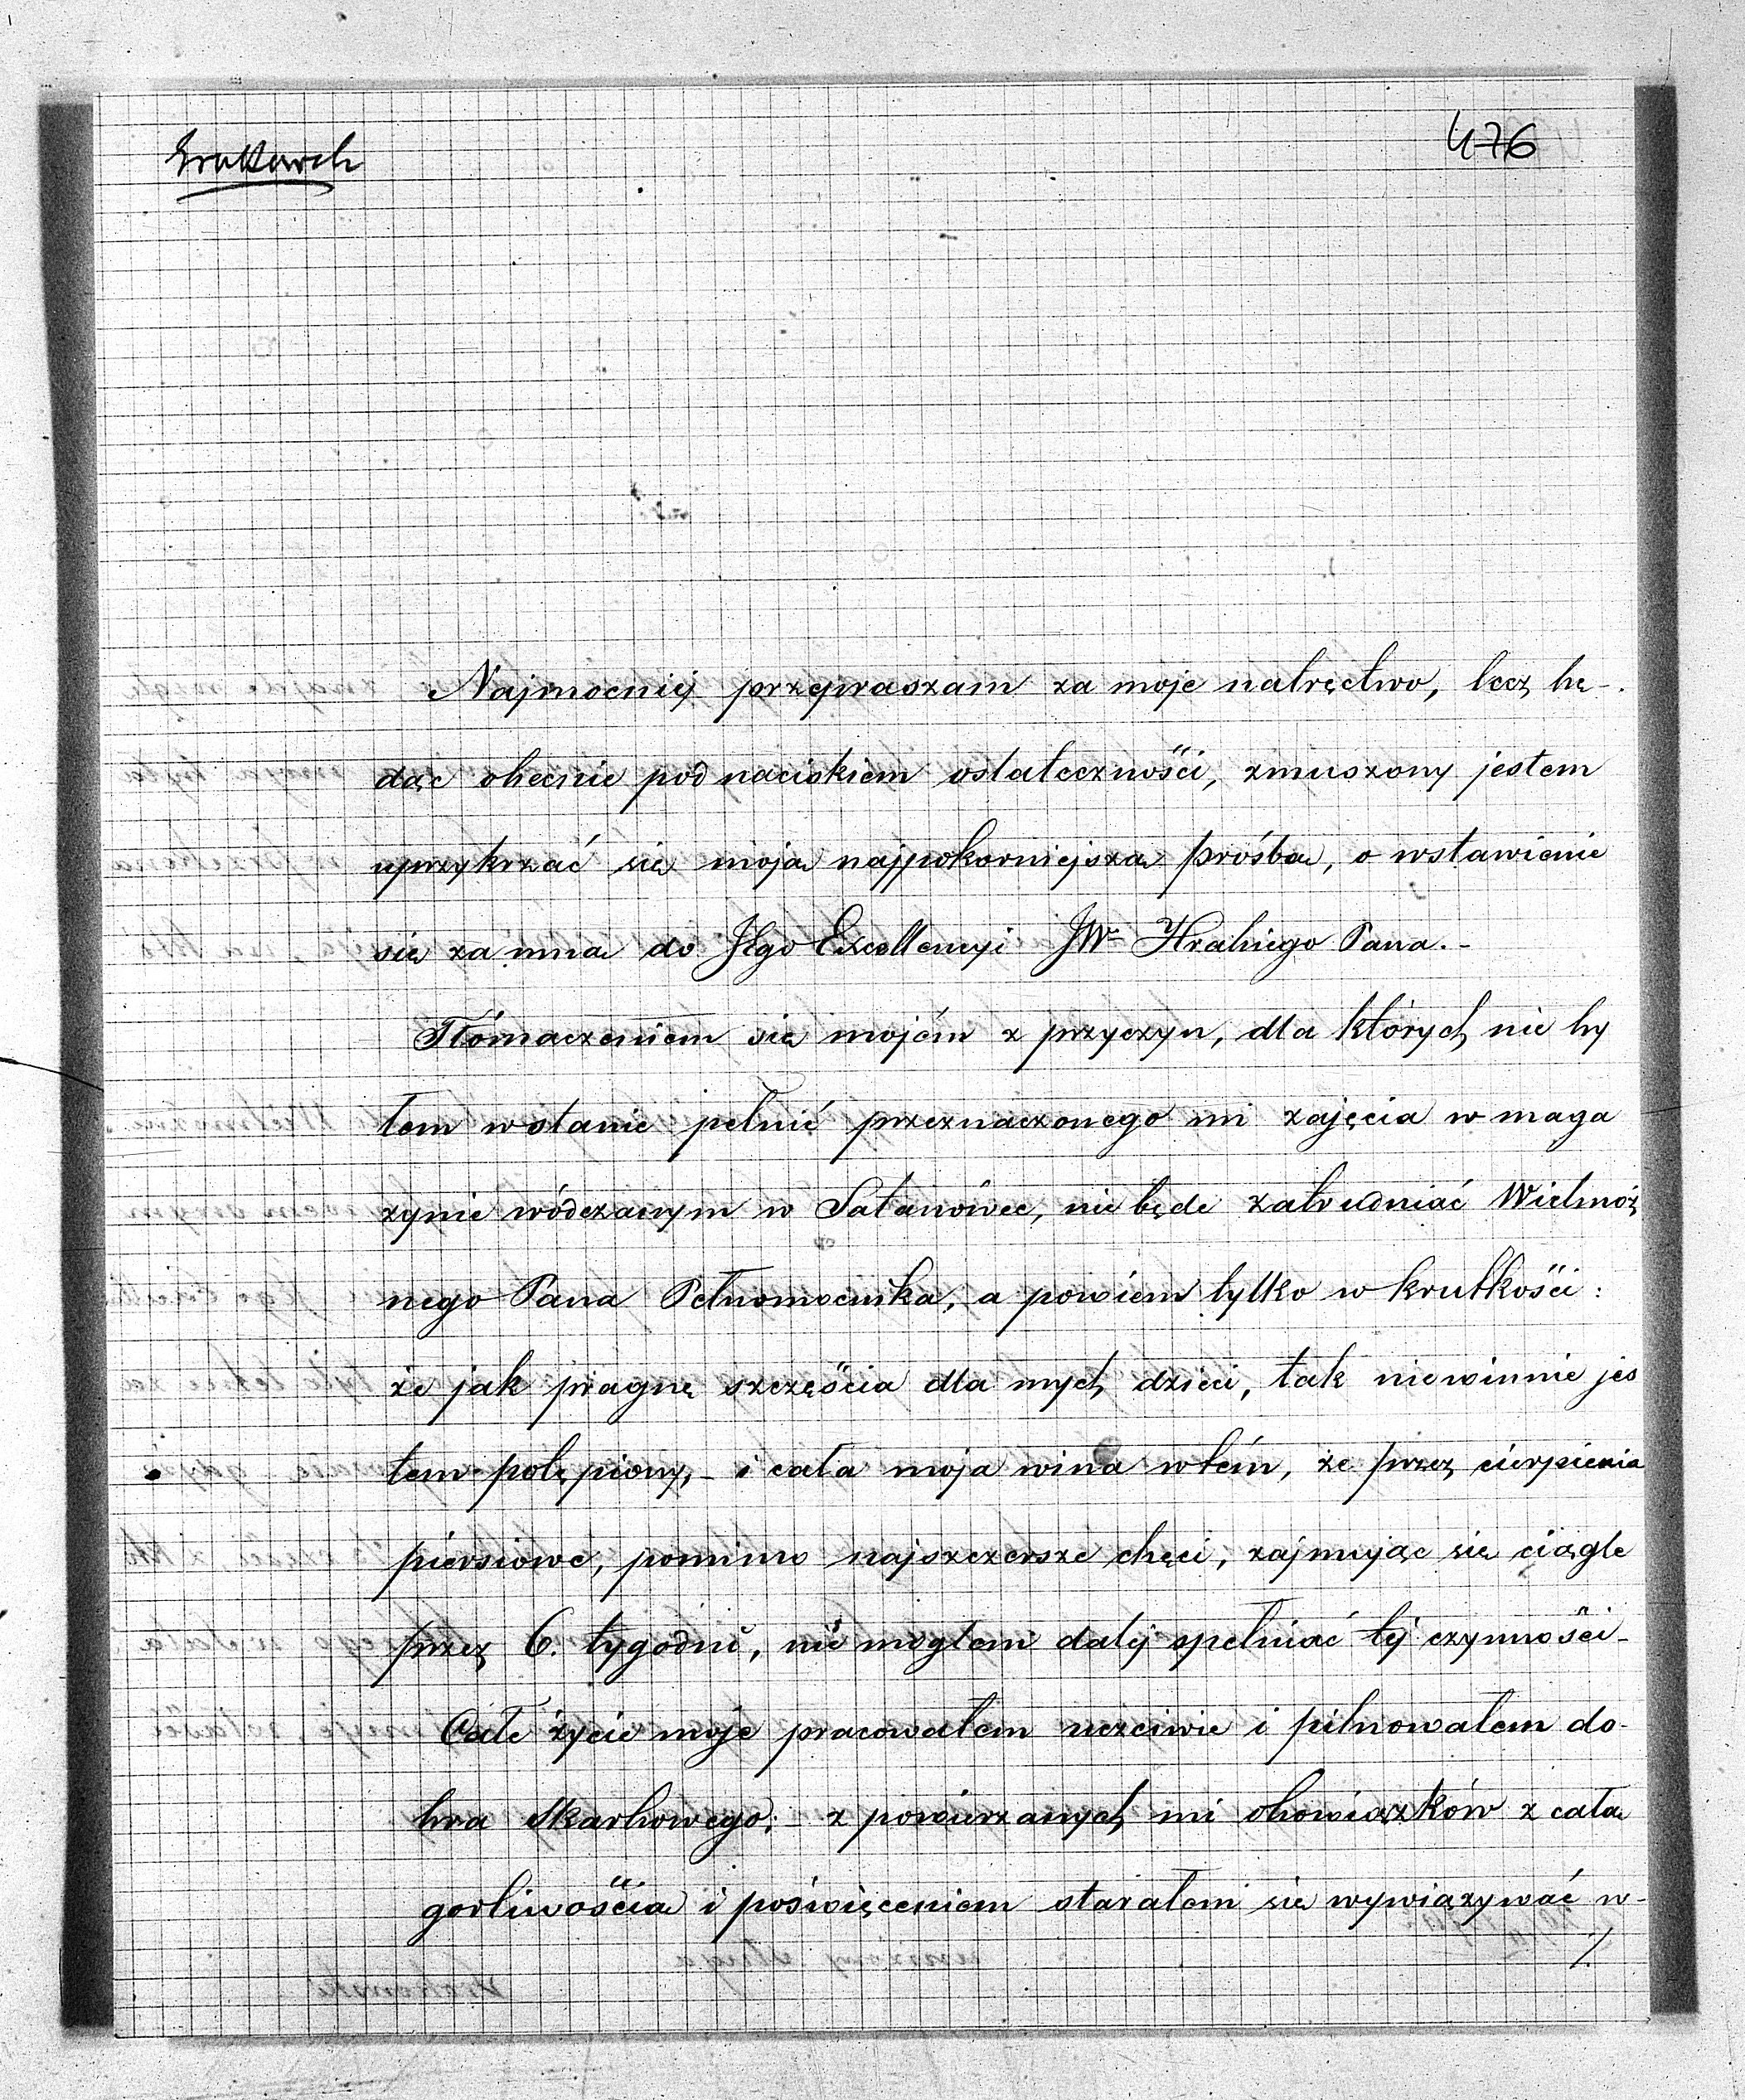 476
Najmocniej przepraszam za moje natręctwo, lecz bę-
dąc obecnie pod naciskiem ostateczności, zmuszony jestem
uprzykrzać się moją najpokorniejszą prośbą, o wstawienie
się za mną do JEgo Excellencyi JW Hrabiego Pana.-
Tłómaczeniem się mojém z przyczyn, dla których nie by
łem wstanie pełnić przeznaczonego mi zajęcia w maga
zynie wódczanym w Satanówce, nie będę zatrudniać Wielmoż
nego Pana Pełnomocnika, a powiem tylko w krutkości:
że jak pragnę szczęścia dla mych dzieci, tak niewinnie jes
tem potępiony,- i cała moja wina wtém, że przez cierpienia
piersiowe, pomimo najszczersze chęci, zajmując się ciągle
przez 6. tygodni, nie mogłem dalej spełniać tej czynności-
Całe życie moje pracowałem uczciwie i pilnowałem do-
bra skarbowego;- z powierzanych mi obowiązków z całą
gorliwością i poświęceniem starałem się wywiązywać w-
./.